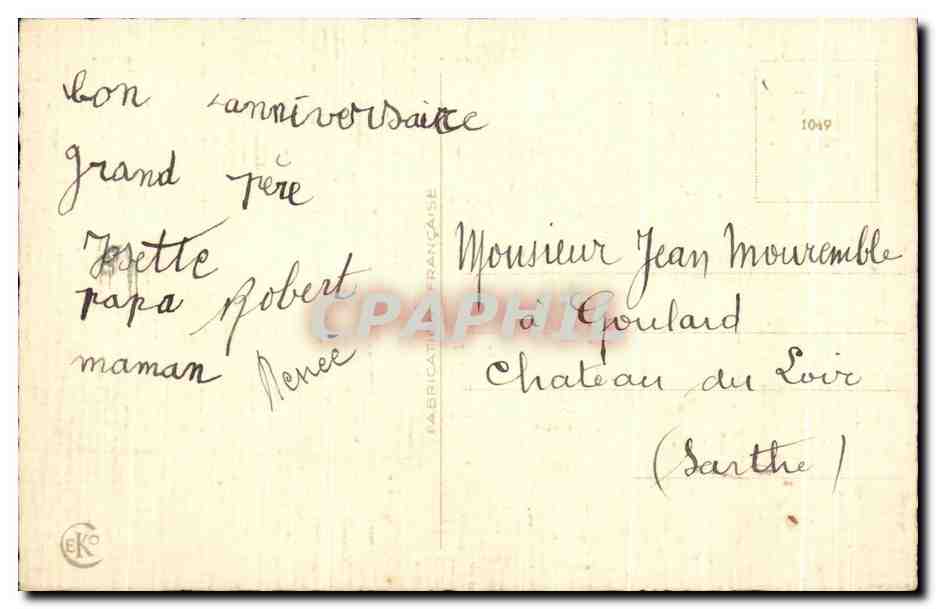 bon anniversaire
grand Père
Josette
papa Robert
maman Renée
FABRICATION FRANÇAISE
1049
Monsieur Jean Mouremble
à Goulard
Château du Loir
(Sarthe)
CEKO
CPAPHIL